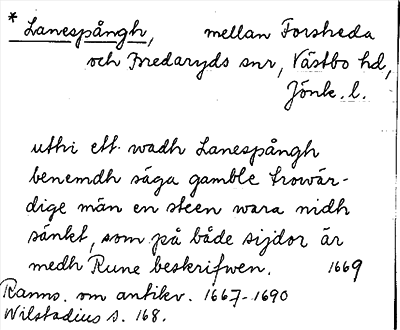 * Lanespångh, mellan Forsheda
och Bredaryds snr, Västbo hd,
Jönk. l.
uthi ett wadh Lanespångh
benemdh säga gamble trowär-
dige män en steen wara nidh
sänkt, som på både sijdor är
medh Rune beskrifwen. 1669
Ranns. om antikv. 1667-1690
Wilstadius s. 168.